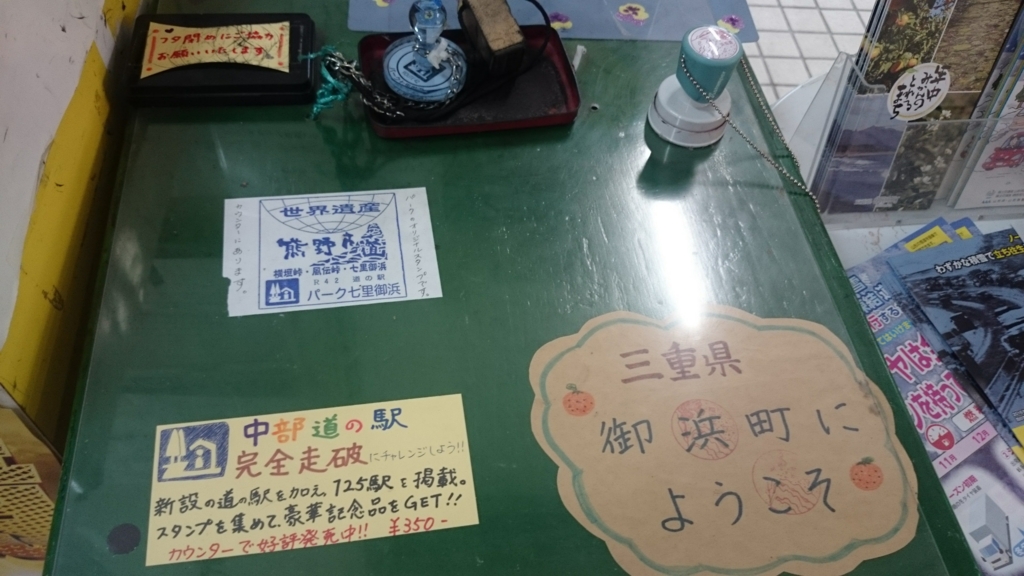 フタ閉めにご協力
お願いいたします
世界遺産
熊野古道
横垣峠・風伝峠・七里御浜
R42 道の駅
パーク七里御浜
パークオリジナルスタンプです。
カウンターにあります。
三重県
御浜町に
ようこそ
中部道の駅
完全走破にチャレンジしよう!!
新設の道の駅を加え、125駅を掲載。
スタンプを集めて豪華記念品をGET!!
カウンターで好評発売中!! ¥350-
年中
みかんの
とれるまち
わずかな積雪で
11月
12月